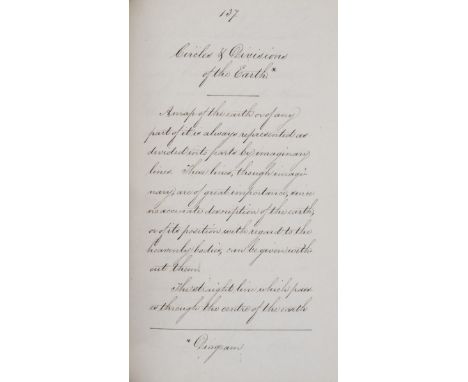 137
Circles & Divisions
of the Earth*
A map of the earth or of any
part of it is always represented as
divided into parts by imaginary
lines. These lines, though imagi-
nary, are of great importance, since
no accurate description of the earth,
or of its position with regard to the
heavenly bodies, can be given with-
out them.
The straight line which pass-
es through the centre of the earth
* Diagram